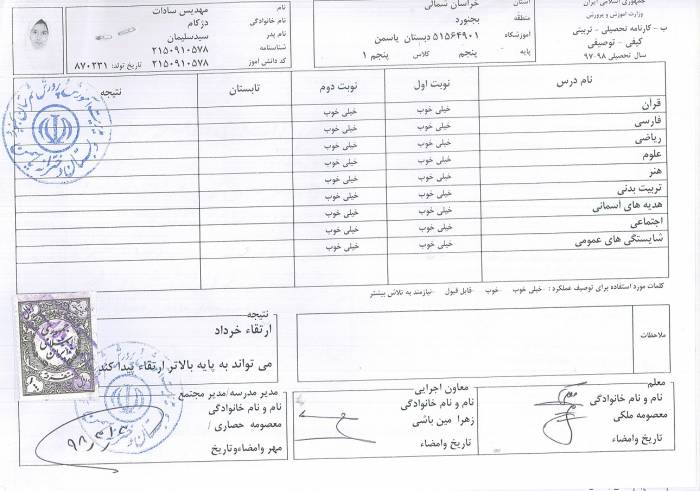 جمهوری اسلامی ایران
وزارت آموزش و پرورش
ب - کارنامه تحصیلی - تربیتی
کیفی - توصیفی
سال تحصیلی ۹۸-۹۷
استان خراسان شمالی
منطقه بجنورد
آموزشگاه ۵۱۵۶۴۹۰۱ دبستان یاسمن
پایه پنجم کلاس پنجم ۱
نام مهدیس سادات
نام خانوادگی دژکام
نام پدر سیدسلیمان
شناسنامه ۲۱۵۰۹۱۰۵۷۸
کد دانش آموز ۲۱۵۰۹۱۰۵۷۸ تاریخ تولد: ۸۷۰۲۳۱
نام درس نوبت اول نوبت دوم تابستان نتیجه
قرآن خیلی خوب خیلی خوب
فارسی خیلی خوب خیلی خوب
ریاضی خیلی خوب خیلی خوب
علوم خیلی خوب خیلی خوب
هنر خیلی خوب خیلی خوب
تربیت بدنی خیلی خوب خیلی خوب
هدیه های آسمانی خیلی خوب خیلی خوب
اجتماعی خیلی خوب خیلی خوب
شایستگی های عمومی خیلی خوب خیلی خوب
کلمات مورد استفاده برای توصیف عملکرد: خیلی خوب خوب قابل قبول نیازمند به تلاش بیشتر
ملاحظات
نتیجه
ارتقاء خرداد
می تواند به پایه بالاتر ارتقاء پیدا کند
معلم
نام و نام خانوادگی
معصومه ملکی
تاریخ وامضاء
معاون اجرایی
نام و نام خانوادگی
زهرا مین باشی
تاریخ وامضاء
مدیر مدرسه/مدیر مجتمع
نام و نام خانوادگی
معصومه حصاری /
مهر وامضاءوتاریخ
۹۸/۳/۳